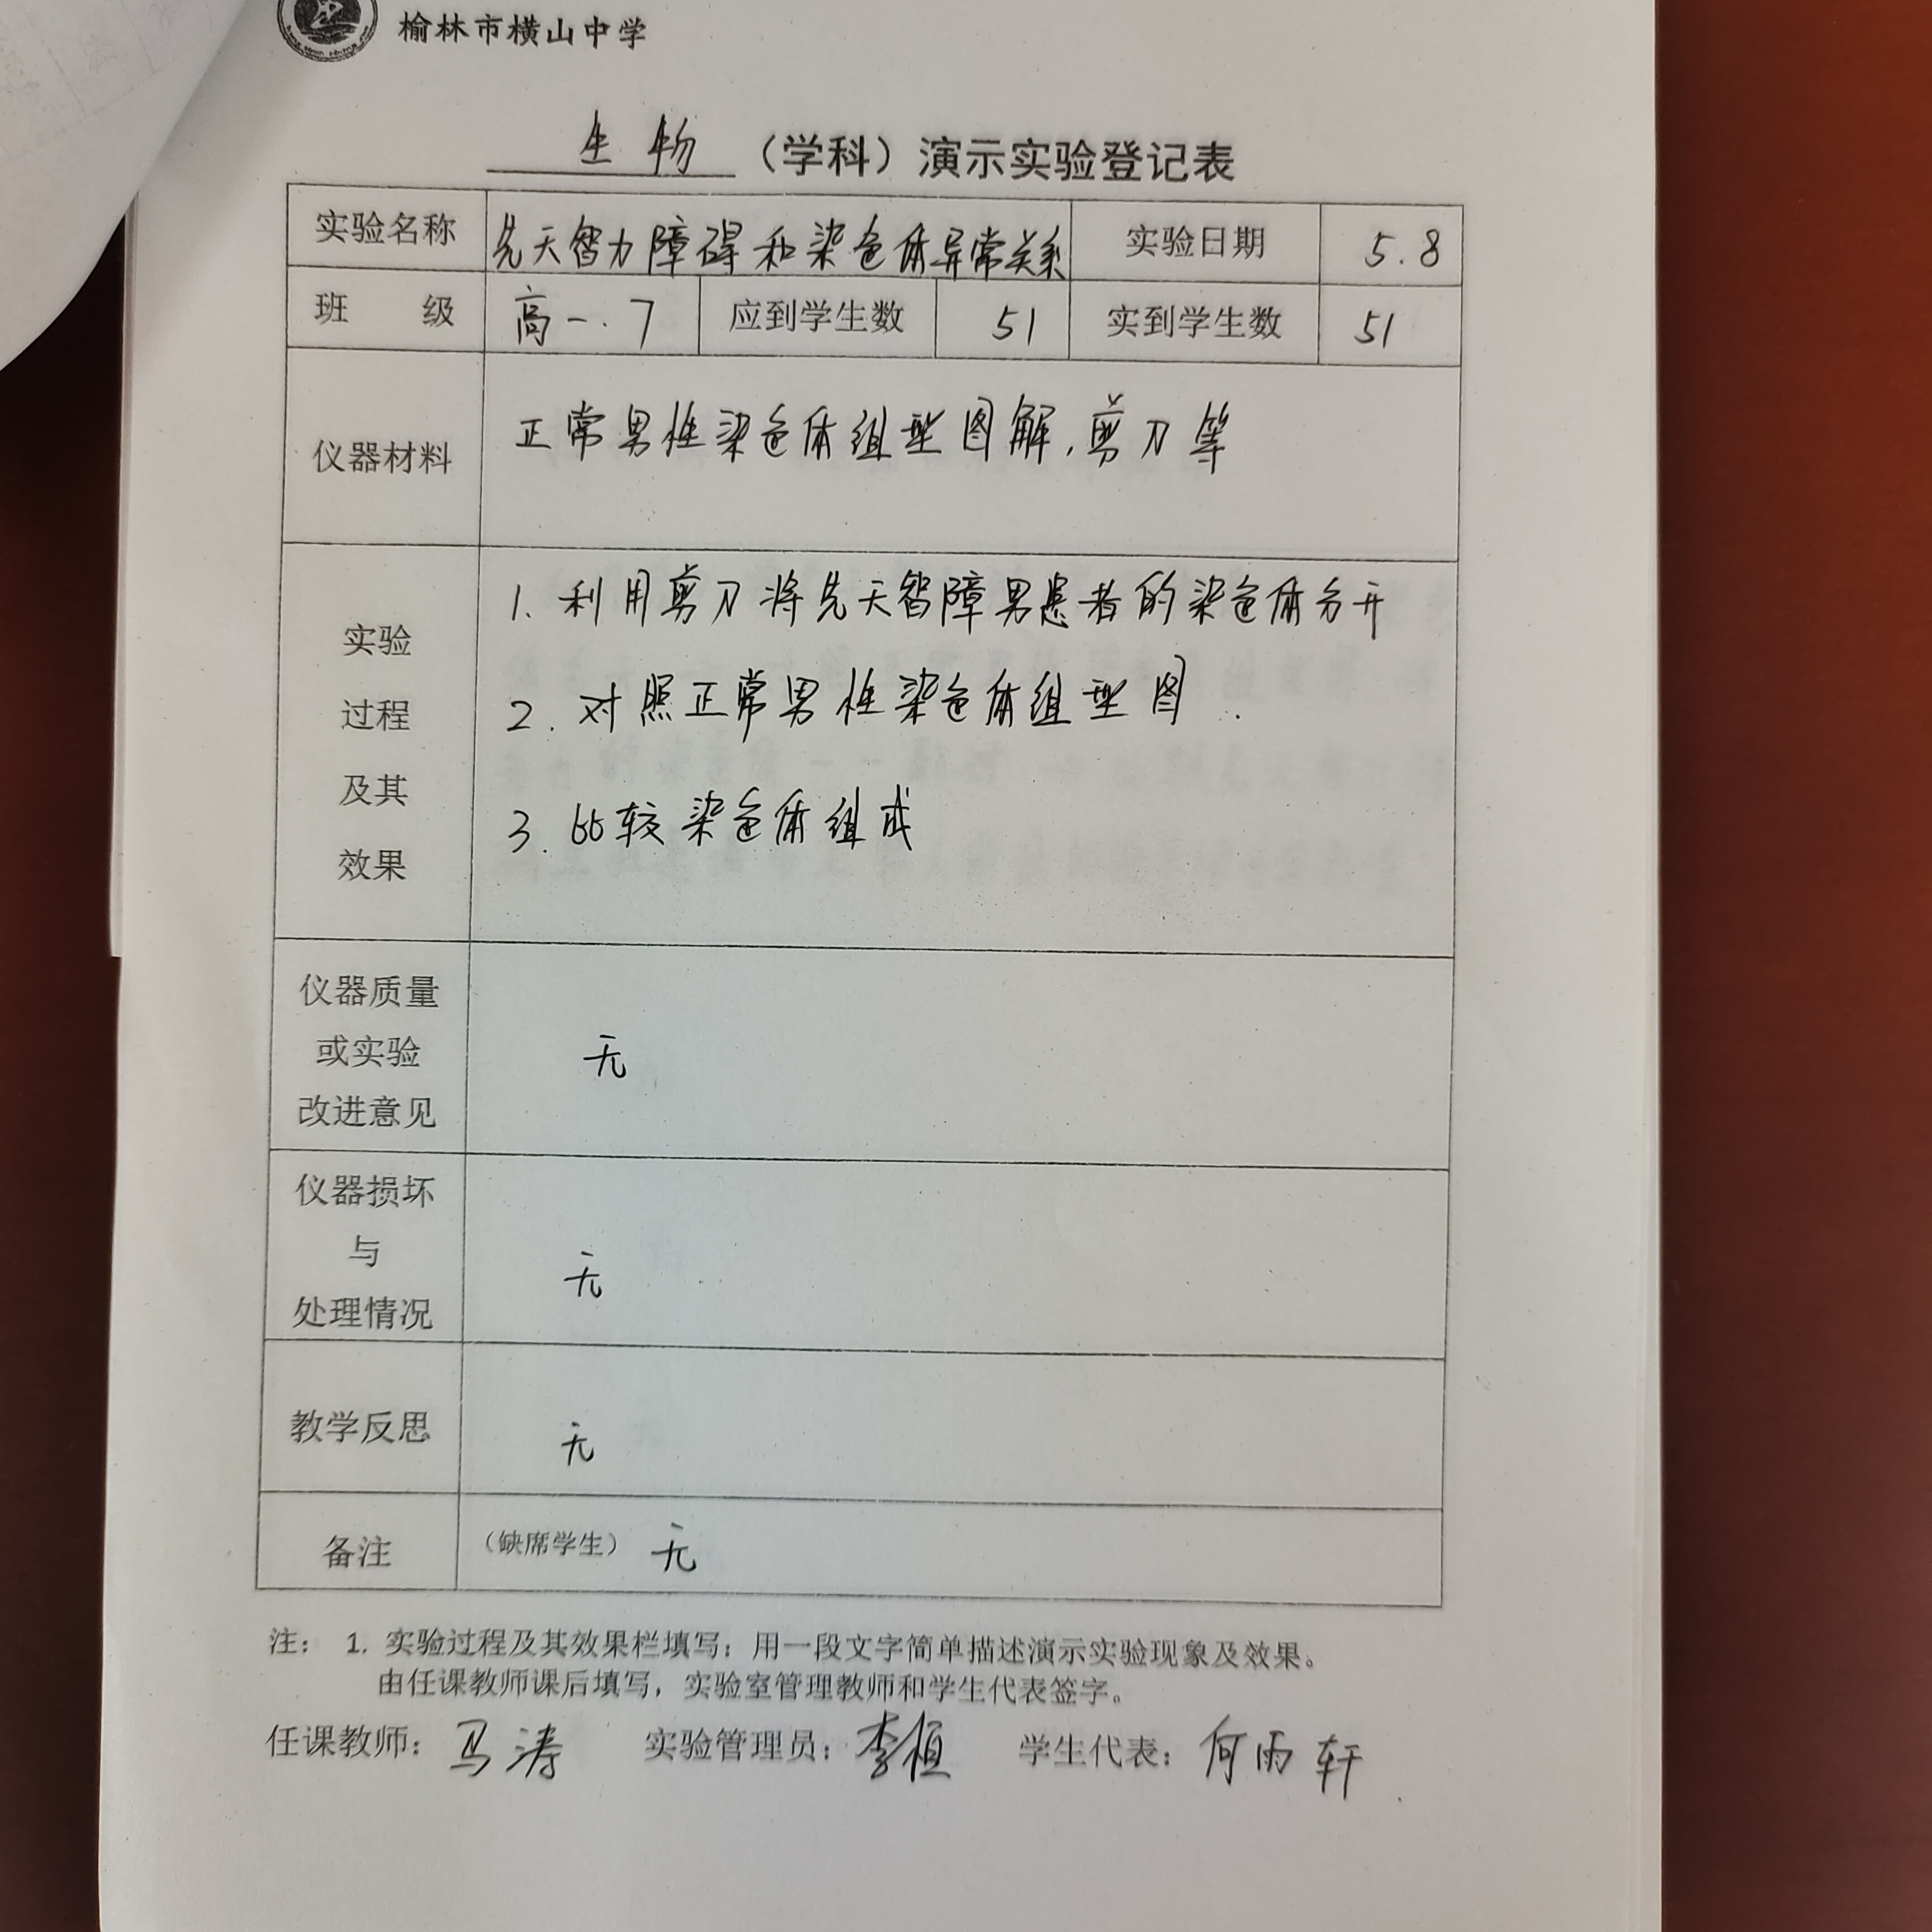 榆林市横山中学
生物（学科）演示实验登记表
实验名称 先天智力障碍和染色体异常关系 实验日期 5.8
班 级 高一.7 应到学生数 51 实到学生数 51
仪器材料 正常男性染色体组型图解，剪刀等
实验
过程
及其
效果
1. 利用剪刀将先天智障男患者的染色体分开
2. 对照正常男性染色体组型图.
3. 比较染色体组成
仪器质量
或实验
改进意见
无
仪器损坏
与
处理情况
无
教学反思 无
备注 （缺席学生） 无
注： 1. 实验过程及其效果栏填写：用一段文字简单描述演示实验现象及效果。
由任课教师课后填写，实验室管理教师和学生代表签字。
任课教师：马涛 实验管理员：李恒 学生代表：何雨轩